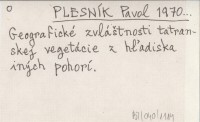 PLESNÍK Pavol 1970...
Geografické zvláštnosti tatran-
skej vegetácie z hľadiska
iných pohorí.